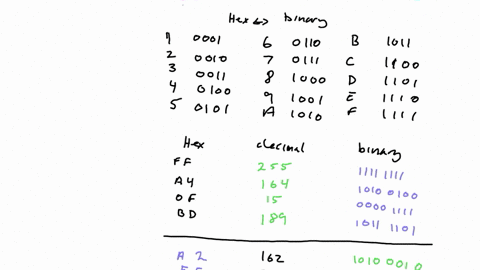 Hex ↔ binary
1 0001 6 0110 B 1011
2 0010 7 0111 C 1100
3 0011 8 1000 D 1101
4 0100 9 1001 E 1110
5 0101 A 1010 F 1111
Hex decimal binary
FF 255 1111 1111
A4 164 1010 0100
0F 15 0000 1111
BD 189 1011 1101
A 2 162 1010 0010